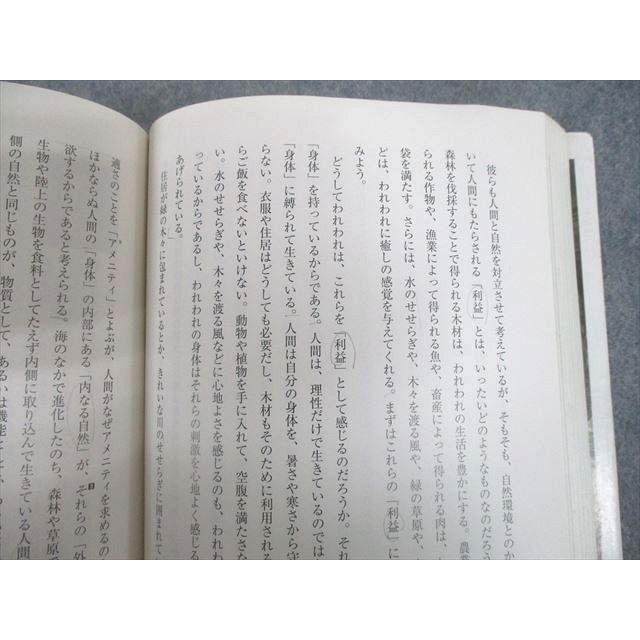 彼らも人間と自然を対立させて考えているが、そもそも、自然環境とのか
いて人間にもたらされる「利益」とは、いったいどのようなものなのだろう
森林を伐採することで得られる木材は、われわれの生活を豊かにする。農業
られる作物や、漁業によって得られる魚や、畜産によって得られる肉は、
袋を満たす。さらには、水のせせらぎや、木々を渡る風や、緑の草原や、
どは、われわれに癒しの感覚を与えてくれる。まずはこれらの「利益」に
みよう。
どうしてわれわれは、これらを「利益」として感じるのだろうか。それ
「身体」を持っているからである。人間は、理性だけで生きているのでは
「身体」に縛られて生きている。人間は自分の身体を、暑さや寒さから守
らない。衣服や住居はどうしても必要だし、木材もそのために利用される
らご飯を食べないといけない。動物や植物を手に入れて、空腹を満たさな
い。水のせせらぎや、木々を渡る風などに心地よさを感じるのも、われわ
っているからであるし、われわれの身体はそれらの刺激を心地よく感じる
あげられている。
住居が緑の木々に包まれているとか、きれいな川のせせらぎに囲まれてい
適さのことを「アメニティ」とよぶが、人間がなぜアメニティを求めるの
ほかならぬ人間の「身体」の内部にある「内なる自然」が、それらの「外
欲するからであると考えられる。海のなかで進化したのち、森林や草原で
生物や陸上の生物を食料としてたえず内側に取り込んで生きている人間
側の自然と同じものが、物質として、あるいは機能として、